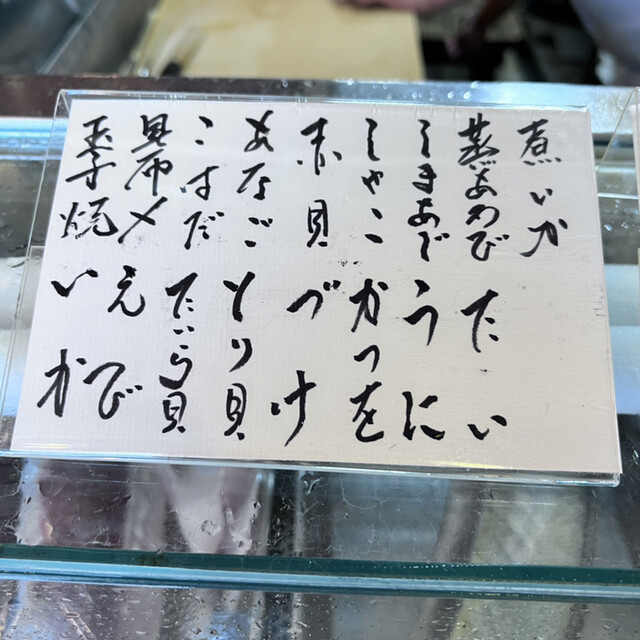 煮いか
蒸あわび たい
しまあぢ うに
しゃこ かつを
赤貝 づけ
あなご とり貝
こはだ たいら貝
昆布〆 えび
玉子焼 いか